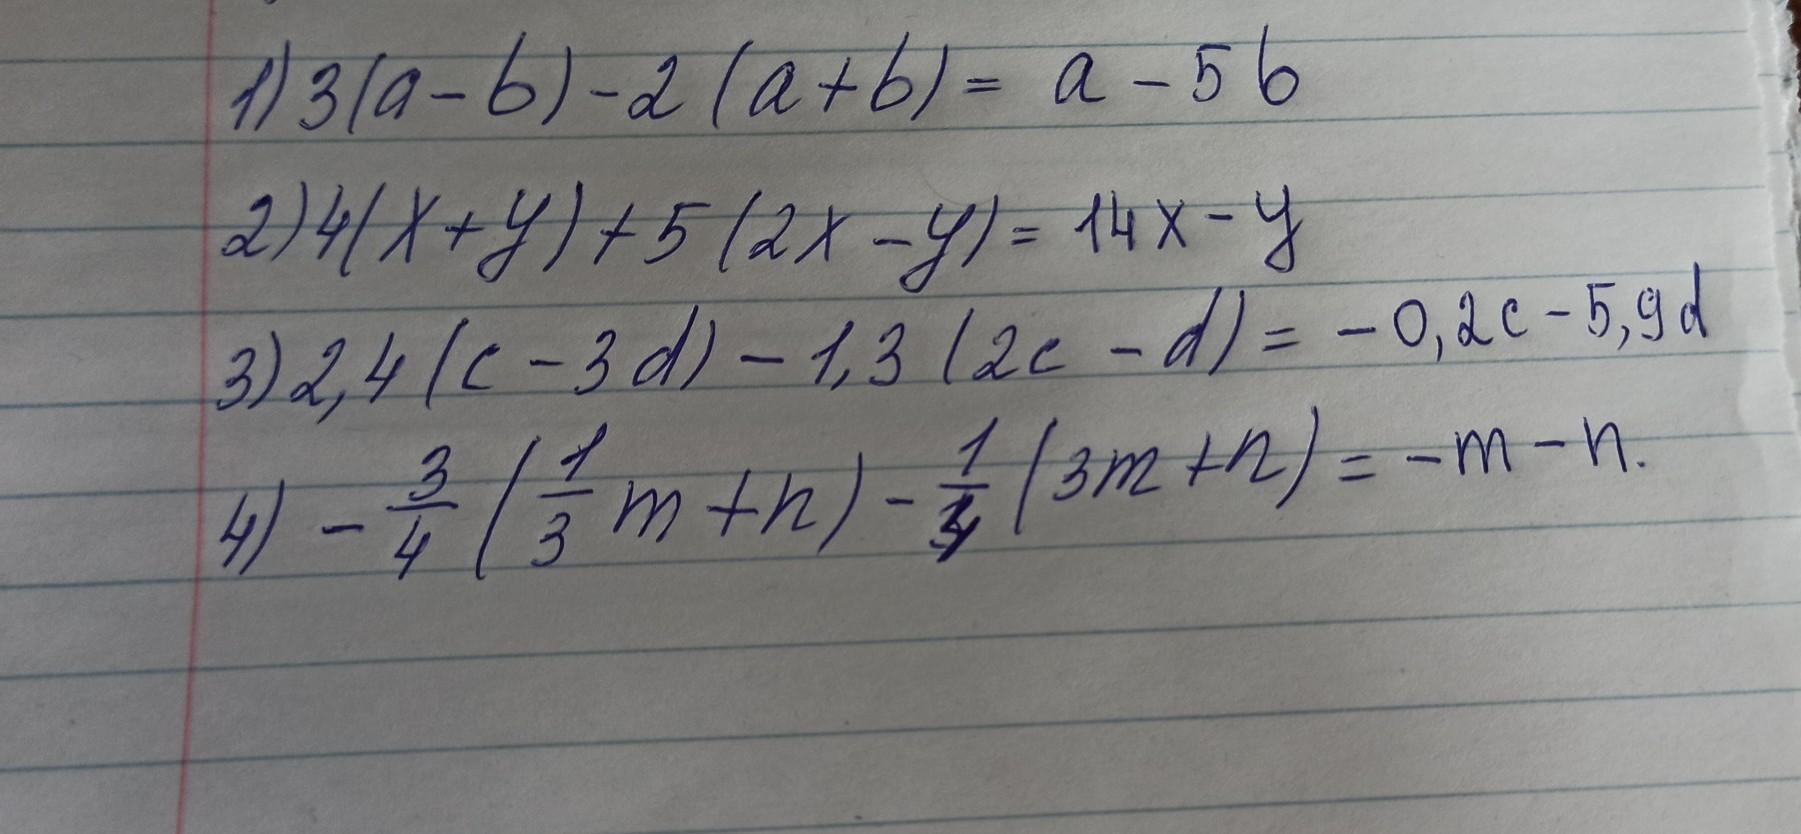 1) 3(a-b)-2(a+b)= a-5b
2) 4(x+y)+5(2x-y)= 14x-y
3) 2,4(c-3d)-1,3(2c-d)= -0,2c-5,9d
4) -3/4(1/3m+n)-1/4(3m+n)= -m-n.